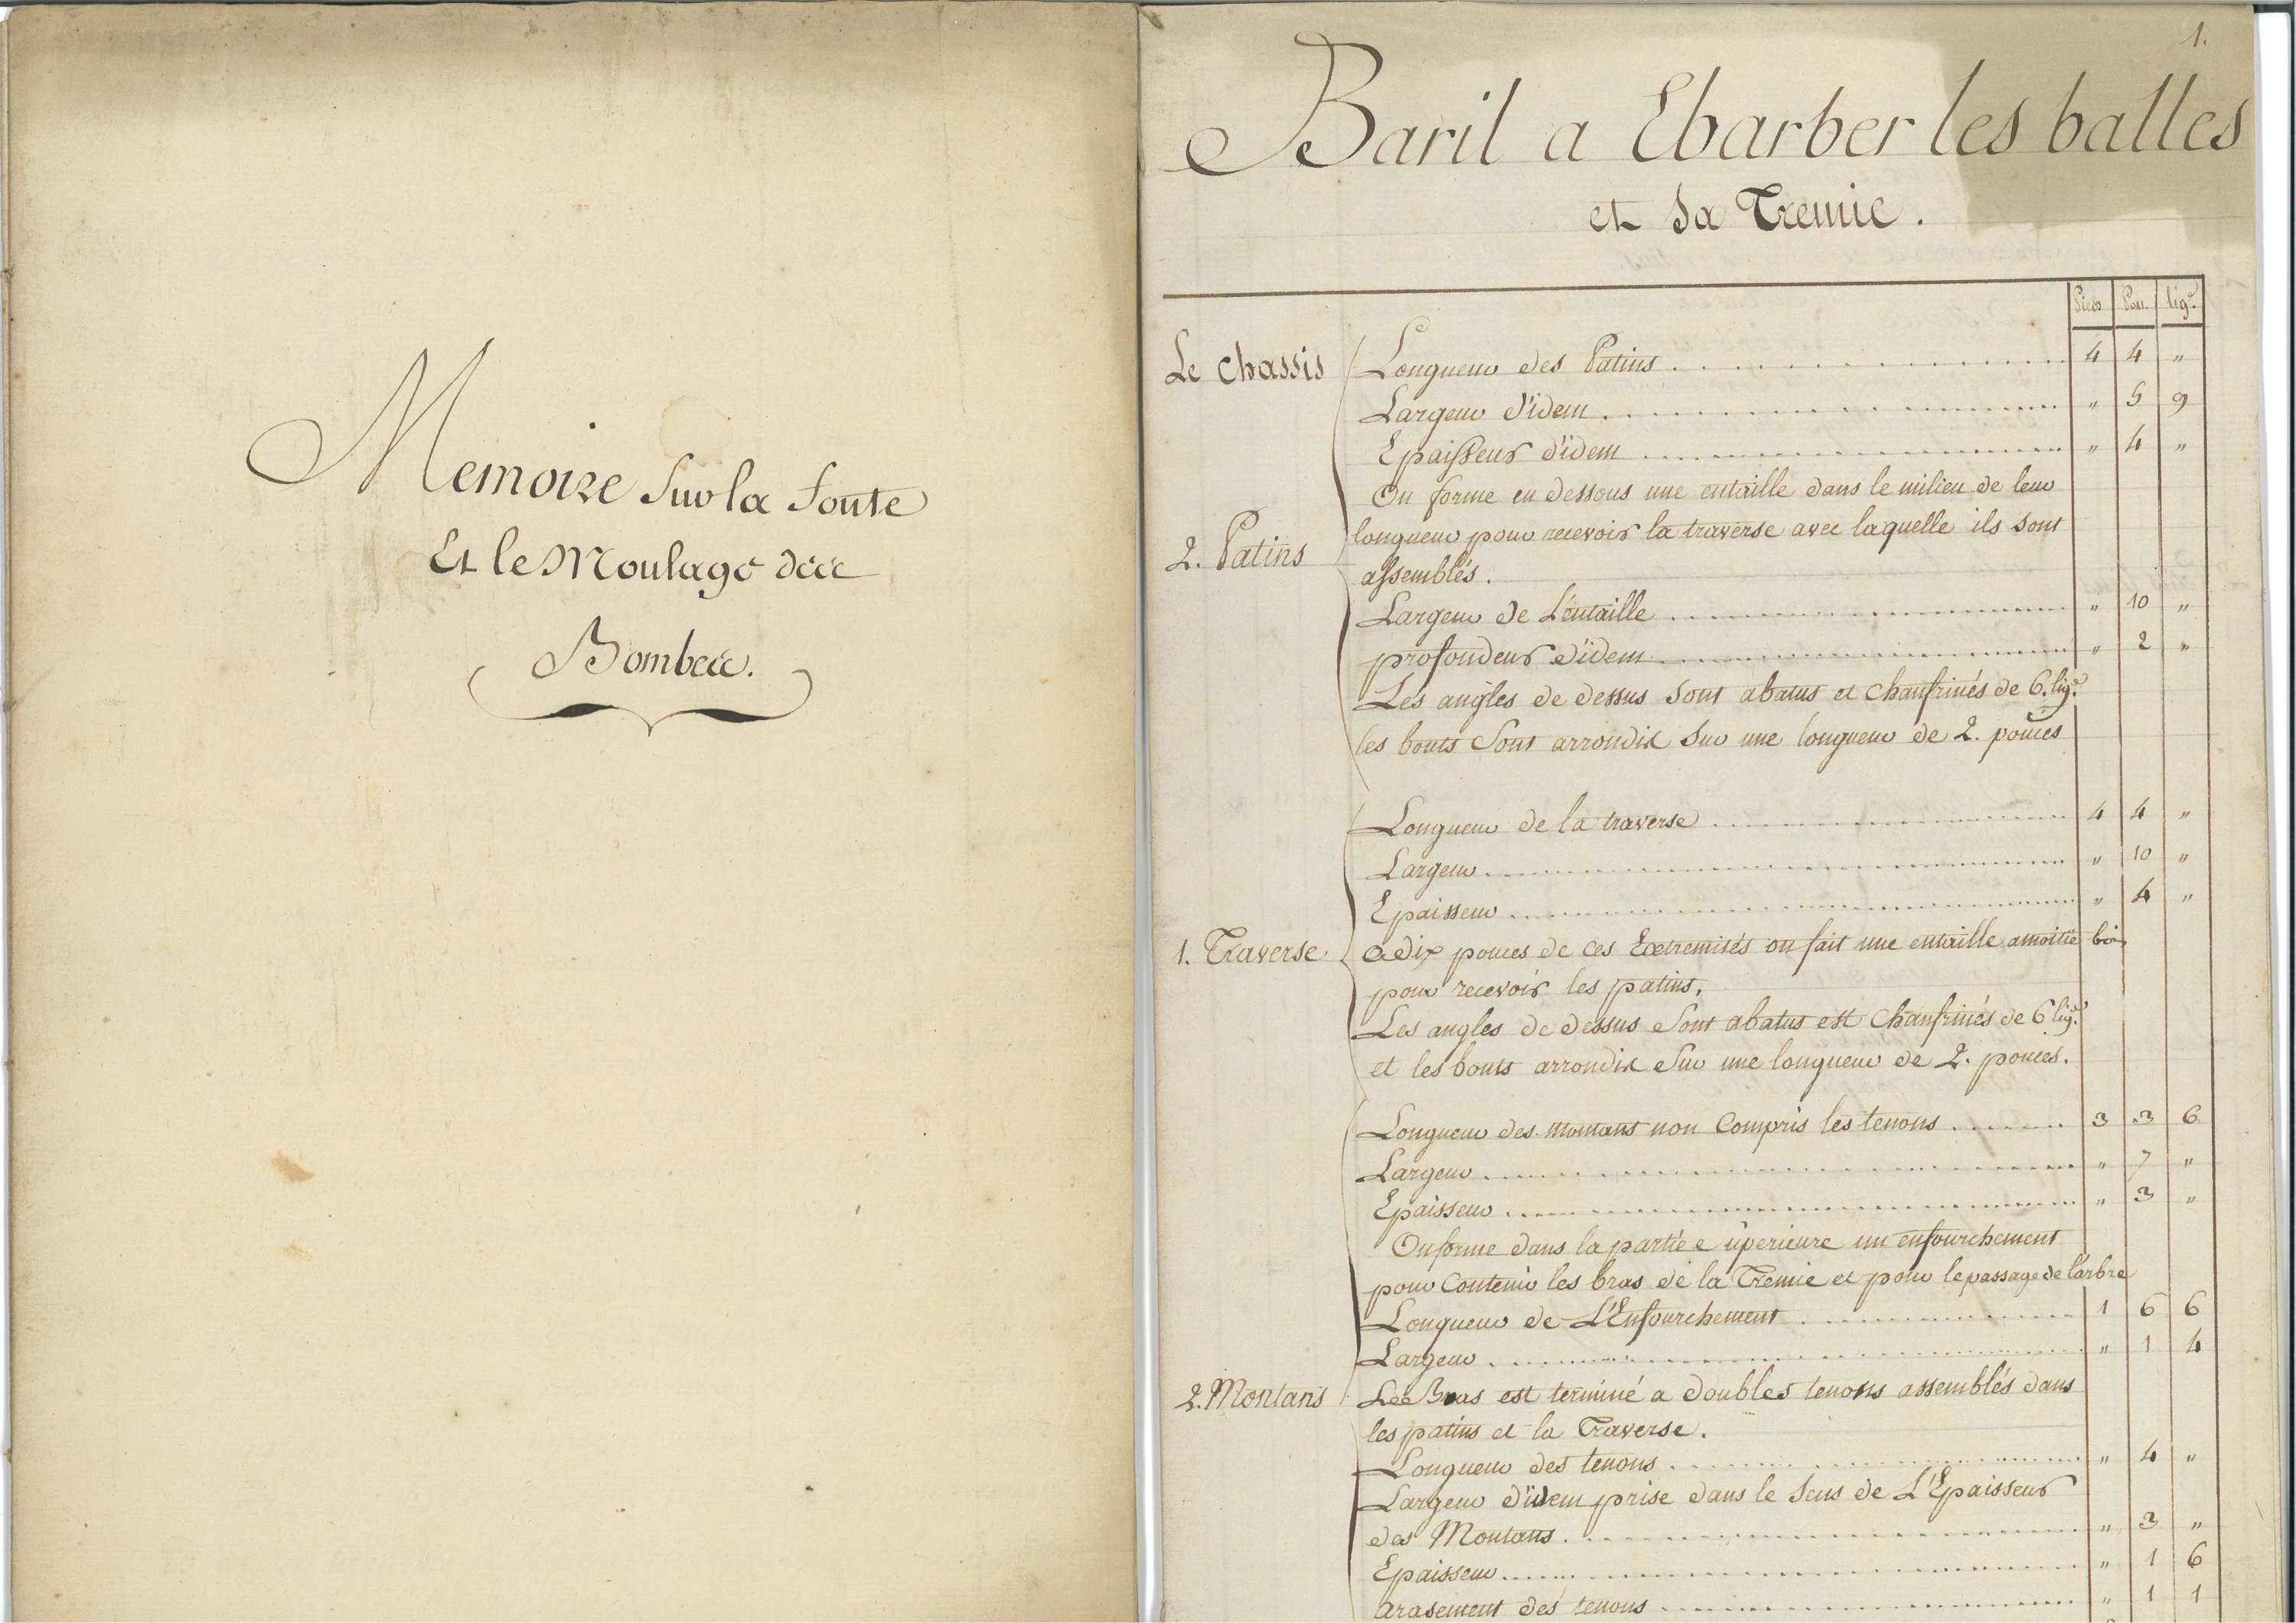 Memoire Sur la fonte
Et le Moulage des
Bombes.
1.
Baril a Ebarber les balles
et sa Tremie.
Pieds Pou. lig.s
Le chassis Longueur des Patins 4 4 "
Largeur d'idem " 5 9
Epaisseur d'idem " 4 "
On forme en dessous une entaille dans le milieu de leur
2. Patins longueur pour recevoir la traverse avec laquelle ils sont
assemblés.
Largeur de L'entaille " 10 "
profondeur d'idem " 2 "
Les angles de dessus sont abatus et chanfrinés de 6. lig.s
les bouts sont arrondis sur une longueur de 2. pouces
Longueur de la traverse 4 4 "
Largeur " 10 "
Epaisseur " 4 "
1. Traverse adix pouces de ces Extremités on fait une entaille amoitié bois
pour recevoir les patins.
Les angles de dessus sont abatus est chanfrinés de 6 lig.s
et les bouts arrondis sur une longueur de 2. pouces.
Longueur des montans non compris les tenons 3 3 6
Largeur " 7 "
Epaisseur " 3 "
On forme dans la partie superieure un enfourchement
pour contenir les bras de la Tremie et pour le passage de l'arbre
Longueur de L'Enfourchement 1 6 6
Largeur " 1 4
2. Montans Les Bras est terminé a doubles tenons assemblés dans
les patins et la Traverse.
Longueur des tenons " 4 "
Largeur d'idem prise dans le sens de L'Epaisseur
des Montans " 3 "
Epaisseur " 1 6
arasement des tenons " 1 1